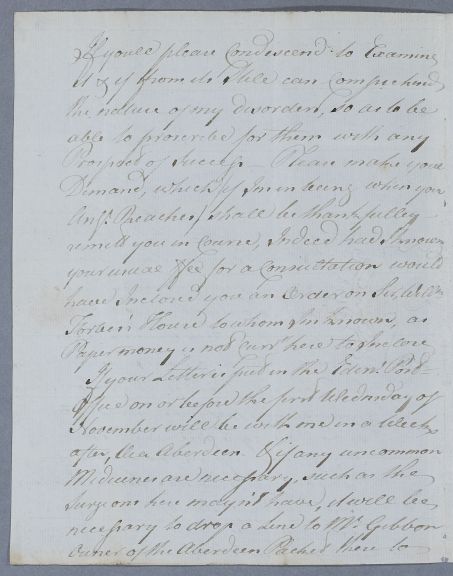 If youll please Condescend to Examine
it & if from its Stile can Comprehend
the nature of my disorders, So as to be
able to prescribe for them with any
Prospect of Success — Please make your
Demand, which if Im in being when your
Ansr. Reaches, shall be thankfully
remitt you in Course, Indeed had I known
your usual Fee for a Consultation would
have Inclosed you an Order on Sir Willm.
Forbes's House to whom I'm known, as
Paper money is not curr't here to Inclose
If your Letter is put in the Edinr. Post
Office on or before the first Wednesday of
November will be with me in a Week
after, via Aberdeen & if any uncommon
Medicines are necessary, such as the
Surgeons here mayn't have, it will be
necessary to drop a Line to Mr. Gibbon
Owner of the Aberdeen Packet there to